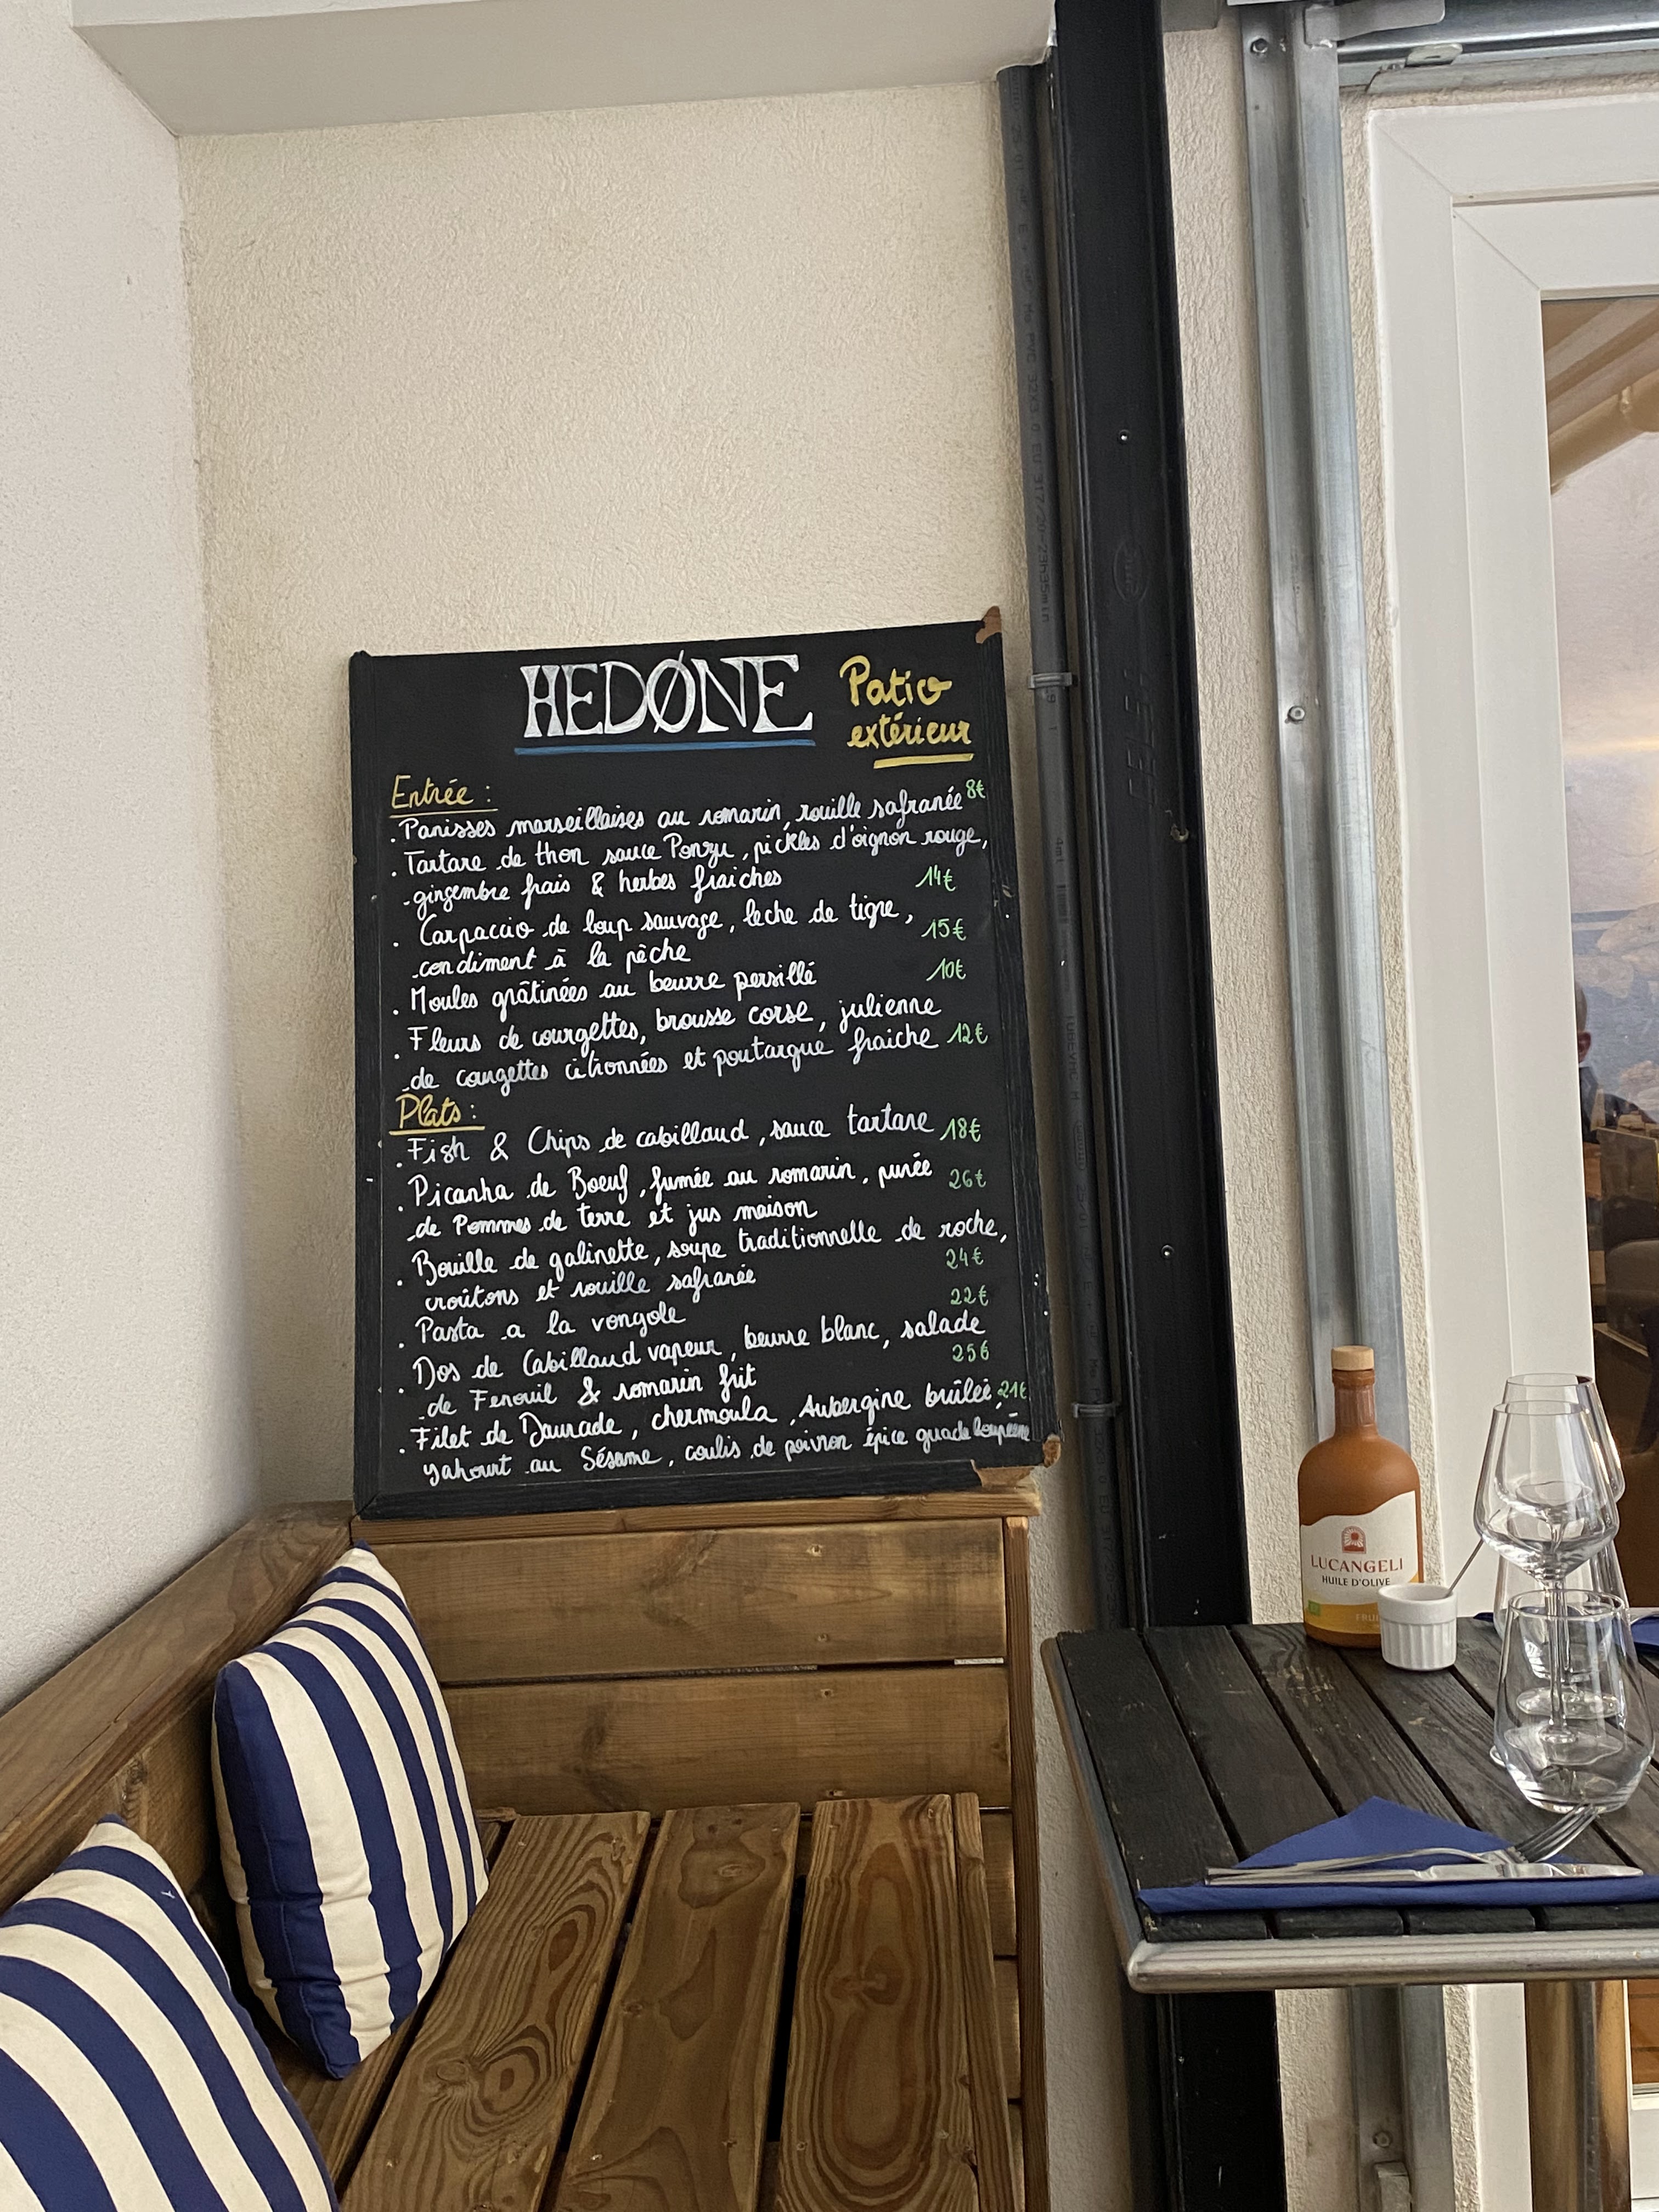 HEDØNE
Patio
extérieur
Entrée :
. Panisses marseillaises au romarin, rouille safranée 8€
. Tartare de thon sauce Ponzu, pickles d'oignon rouge,
gingembre frais & herbes fraiches 14€
. Carpaccio de loup sauvage, leche de tigre, 15€
condiment à la pêche
. Moules grâtinées au beurre persillé 10€
. Fleurs de courgettes, brousse corse, julienne
de courgettes citronnées et poutargue fraiche 12€
Plats :
. Fish & Chips de cabillaud, sauce tartare 18€
. Picanha de Boeuf, fumée au romarin, purée 26€
de Pommes de terre et jus maison
. Bouille de galinette, soupe traditionnelle de roche,
croûtons et rouille safranée 24€
. Pasta a la vongole 22€
. Dos de Cabillaud vapeur, beurre blanc, salade
de Fenouil & romarin frit 25€
. Filet de Daurade, chermoula, Aubergine brûlée, 21€
yahourt au Sésame, coulis de poivron épice guadeloupéenne
LUCANGELI
HUILE D'OLIVE